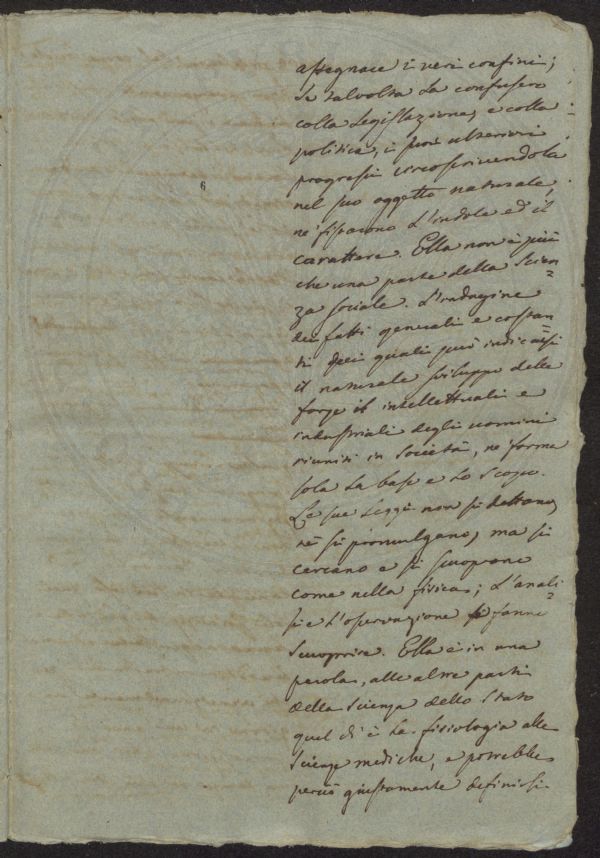 assegnare i veri confini;
Se talvolta la confusero
colla legislazione, e colla
politica, i suoi ulteriori
progressi circoscrivendola
nel suo oggetto naturale,
ne fissarono l'indole ed il
carattere. Ella non è più
che una parte della Scien=
za sociale. L'indagine
dei fatti generali e costan
ti dai quali può indicarsi
il naturale sviluppo delle
forze intellettuali e
industriali degli uomini
riuniti in Società, ne forma
sola la base e lo Scopo.
Le sue Leggi non si dettano,
nè si promulgano, ma si
cercano e si scuoprono
come nella fisica; L'anali=
si e l'osservazione fanno
scuoprire. Ella è in una
parola, alle altre parti
della Scienza dello Stato
quel di è la fisiologia alle
Scienze mediche, e potrebbe
perciò giustamente definirsi
6